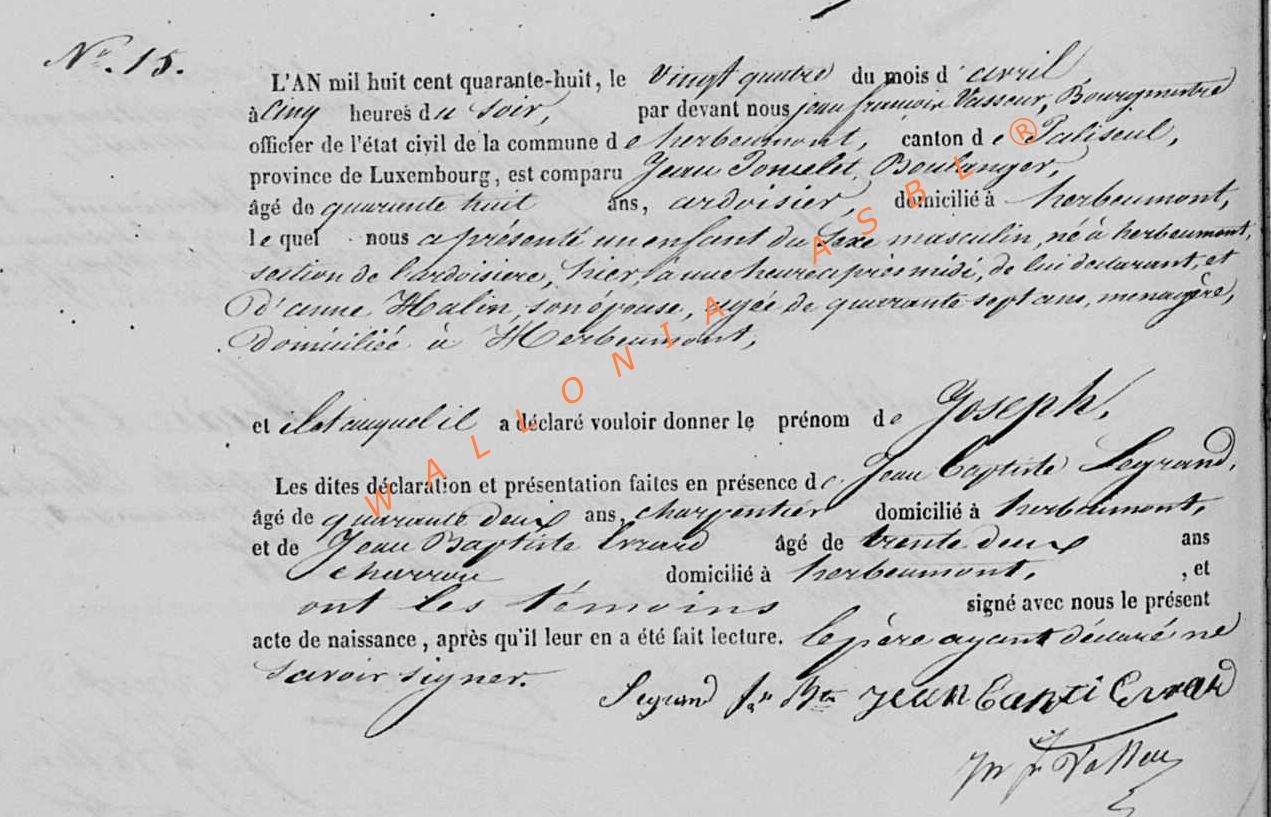 Nº. 15.
L'AN mil huit cent quarante-huit, le vingt quatre du mois d'avril,
à cinq heures du soir, par devant nous jean françois Vasseur, Bourgmestre
officier de l'état civil de la commune de herbeumont, canton de Paliseul,
province de Luxembourg, est comparu Jean Poncelet, Boulanger,
âgé de quarante huit ans, ardoisier, domicilié à herbeumont,
lequel nous a présenté un enfant du sexe masculin, né à herbeumont,
section de l'ardoisiere, hier, à une heure après midi, de lui déclarant, et
d'anne Halin, son épouse, agée de quarante sept ans, menagère,
domiciliée à Herbeumont,
et il et auquel il a déclaré vouloir donner le prénom de Joseph.
Les dites déclaration et présentation faites en présence de Jean Baptiste Legrand,
âgé de quarante deux ans, charpentier domicilié à herbeumont,
et de Jean Baptiste Evrard âgé de trente deux ans
charron domicilié à herbeumont, , et
ont les témoins signé avec nous le présent
acte de naissance, après qu'il leur en a été fait lecture. le père ayant déclaré ne
savoir signer.
Legrand Jn Bte jean Bapti Evrard
WALLONIA ASBL ®